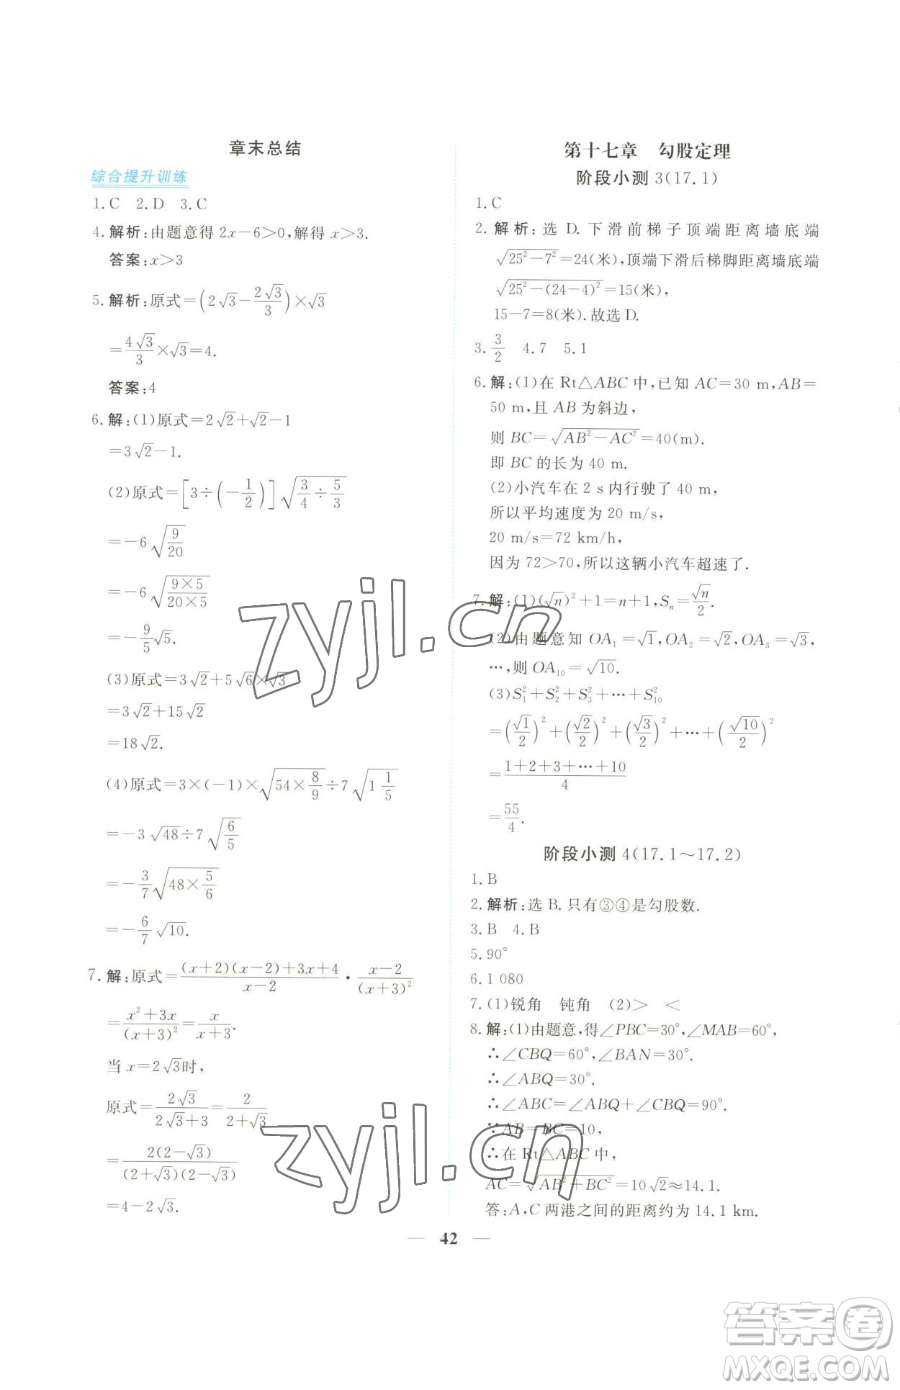 章末总结
综合提升训练
1.C 2.D 3.C
4.解析:由题意得 2x-6>0,解得 x>3.
答案:x>3
5.解析:原式=(2√3-2√3/3)×√3
=4√3/3×√3=4.
答案:4
6.解:(1)原式=2√2+√2-1
=3√2-1.
(2)原式=[3÷(-1/2)]√(3/4÷5/3)
=-6√(9/20)
=-6√((9×5)/(20×5))
=-9/5√5.
(3)原式=3√2+5√6×√3
=3√2+15√2
=18√2.
(4)原式=3×(-1)×√(54×8/9)÷7√(1 1/5)
=-3√48÷7√(6/5)
=-3/7√(48×5/6)
=-6/7√10.
7.解:原式=((x+2)(x-2)+3x+4)/(x-2)·(x-2)/(x+3)²
=(x²+3x)/(x+3)²=x/(x+3).
当 x=2√3时,
原式=2√3/(2√3+3)=2/(2+√3)
=2(2-√3)/((2+√3)(2-√3))
=4-2√3.
第十七章 勾股定理
阶段小测 3(17.1)
1.C
2.解析:选 D.下滑前梯子顶端距离墙底端
√(25²-7²)=24(米),顶端下滑后梯脚距离墙底端
√(25²-(24-4)²)=15(米),
15-7=8(米).故选 D.
3.3/2 4.7 5.1
6.解:(1)在 Rt△ABC 中,已知 AC=30 m,AB=
50 m,且 AB 为斜边,
则 BC=√(AB²-AC²)=40(m).
即 BC 的长为 40 m.
(2)小汽车在 2 s内行驶了 40 m,
所以平均速度为 20 m/s,
20 m/s=72 km/h,
因为 72>70,所以这辆小汽车超速了.
7.解:(1)(√n)²+1=n+1,Sₙ=√n/2.
(2)由题意知 OA₁=√1,OA₂=√2,OA₃=√3,
…,则 OA₁₀=√10.
(3)S₁²+S₂²+S₃²+…+S₁₀²
=(√1/2)²+(√2/2)²+(√3/2)²+…+(√10/2)²
=(1+2+3+…+10)/4
=55/4.
阶段小测 4(17.1~17.2)
1.B
2.解析:选 B.只有③④是勾股数.
3.B 4.B
5.90°
6.1 080
7.(1)锐角 钝角 (2)> <
8.解:(1)由题意,得∠PBC=30°,∠MAB=60°,
∴∠CBQ=60°,∠BAN=30°,
∴∠ABQ=30°.
∴∠ABC=∠ABQ+∠CBQ=90°.
∵AB=BC=10,
∴在 Rt△ABC中,
AC=√(AB²+BC²)=10√2≈14.1.
答:A,C 两港之间的距离约为 14.1 km.
42
zyjl.cn
zyjl.cn
答案圈
MXQE.COM